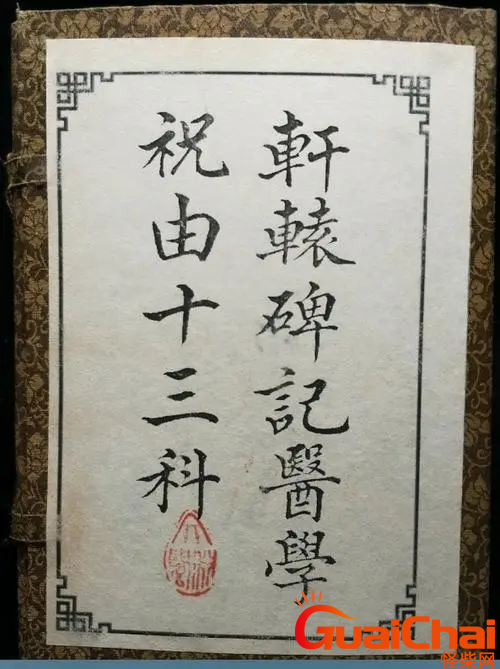 軒轅碑記醫學
祝由十三科
GuaiChai
怪柴网